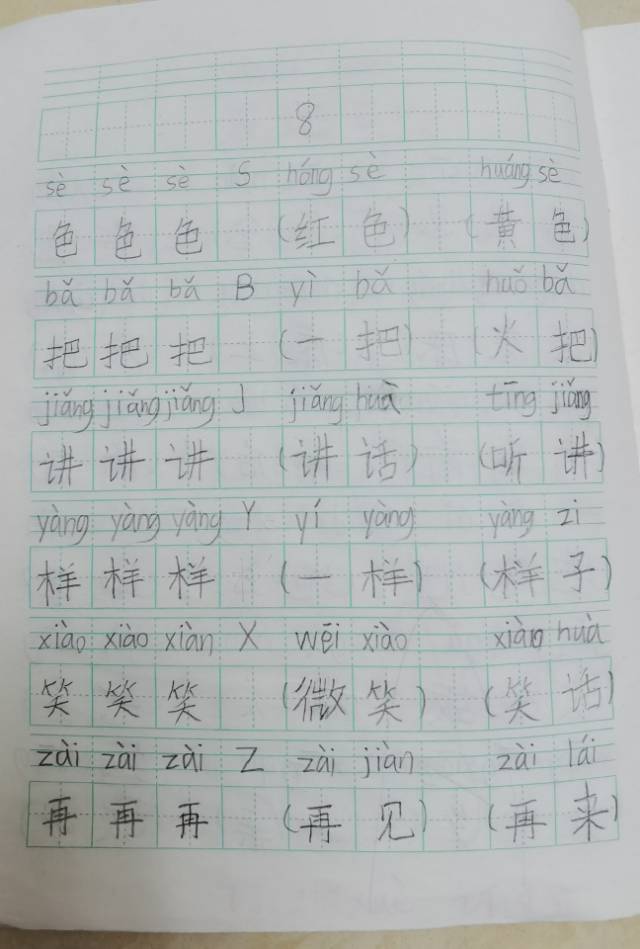 8
sè sè sè S hóng sè huáng sè
色 色 色 (红 色) (黄 色)
bǎ bǎ bǎ B yì bǎ huǒ bǎ
把 把 把 (一 把) (火 把)
jiǎng jiǎng jiǎng J jiǎng huà tīng jiǎng
讲 讲 讲 (讲 话) (听 讲)
yàng yàng yàng Y yí yàng yàng zi
样 样 样 (一 样) (样 子)
xiào xiào xiàn X wēi xiào xiào huà
笑 笑 笑 (微 笑) (笑 话)
zài zài zài Z zài jiàn zài lái
再 再 再 (再 见) (再 来)